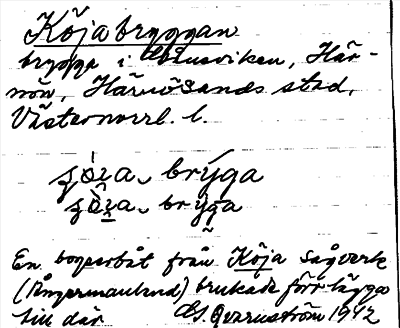 Köjabryggan
brygga i viken, Här-
nön, Härnösands stad,
Västernorrl. l.
brýga
En bogserbåt från Köja sågverk
(Ångermanland) brukade förr lägga
till där. Qvarnström 1942